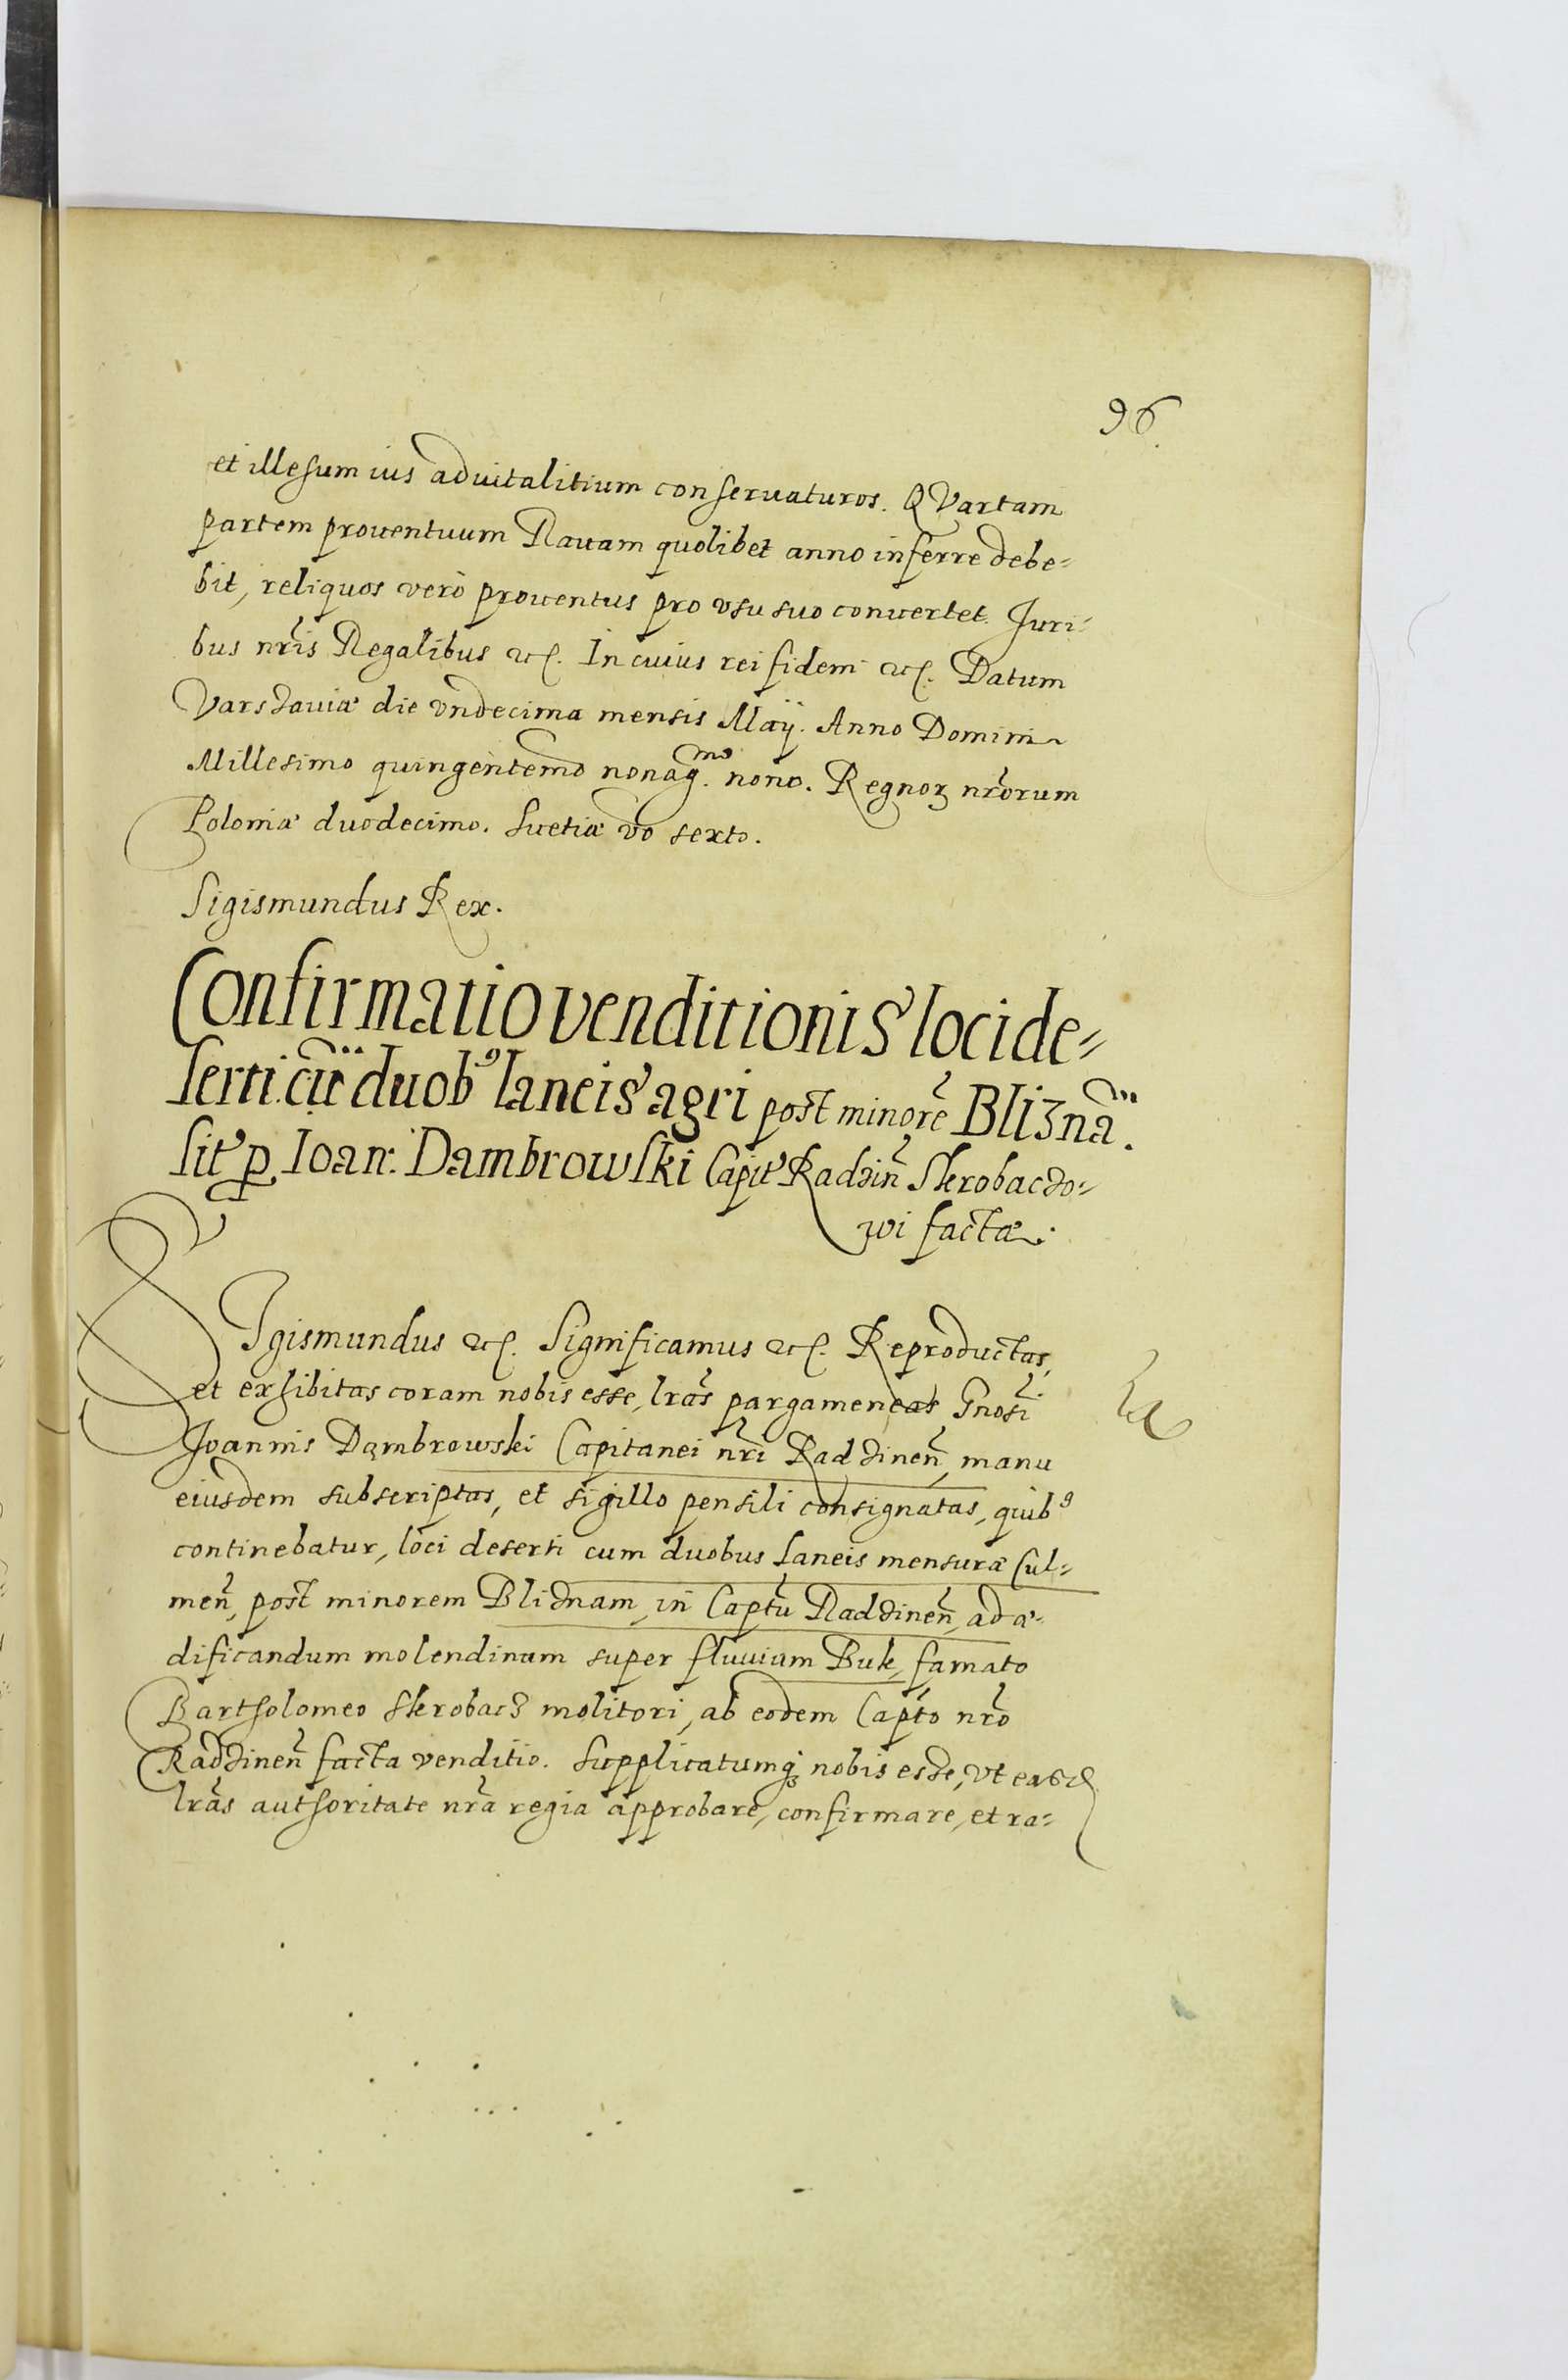 96.
et illesum ius aduitalitium conseruaturos. QVartam
partem prouentuum Rauam quolibet anno inferre debe=
bit, reliquos verò prouentus pro vsu suo conuertet. Juri=
bus nr̃is Regalibus etc. In cuius rei fidem etc. Datum
Varszauiæ die vndecima mensis Maÿ. Anno Domini
Millesimo quingentemo nonag.mo nono. Regnoꝝ nr̃orum
Poloniæ duodecimo. Suetiæ vo sexto.
Sigismundus Rex.
Confirmatio venditionis loci de=
serti cū duobꝰ laneis agri post minorẽ Bliznã.
sit' ꝑ Ioan: Dambrowski Capit' Radzin̄ Skrobaczo=
wi factæ.
SIgismundus etc. Significamus etc. Reproductas,
et exhibitas coram nobis esse, lr̃as pargameneas Gnosi
Joannis Dąmbrowski Capitanei nr̃i Radzinen̄, manu
eiusdem subscriptas, et sigillo pensili consignatas, quibꝰ
continebatur, loci deserti cum duobus laneis mensuræ Cul=
men̄, post minorem Bliznam, in Captũ Radzinen̄, ad æ=
dificandum molendinum super fluuium Buk, famato
Bartholomeo Skrobacz molitori, ab eodem Capto nr̃o
Radzinen̄ facta venditio. Supplicatumqꝫ nobis esse, vt easd
lr̃as authoritate nr̃a regia approbare, confirmare, et ra=